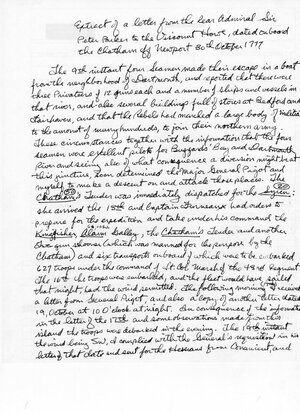 Extract of a letter from the Rear Admiral Sir
Peter Parker to the Viscount Howe, dated onboard
the Chatham off Newport 30th October 1777
The 9th instant four Seamen made their escape in a boat
from the neighborhood of Dartmouth, and reported that there were
three Privateers of 12 guns each and a number of ships and vessels in
that river, and also several buildings full of stores at Bedford and
Fairhaven, and that the Rebels had marched a large body of militia
to the amount of many hundreds, to join their northern army.
These circumstances together with the information that the four
seamen were excellent pilots for Buzzards Bay and Dartmouth
River and seeing also of what consequence a diversion might be at
this juncture, soon determined the Major General Pigot and
myself to make a descent on and attack those places. The
Chatham's Tender was immediately dispatched for the
she arrived the 15th and Captain Furneaux had orders to
prepare for the expedition, and take under his command the
Kingfisher, Alarm Galley, the Chatham's Tender and another
Five gun schooner (which was manned for the purpose by the
Chatham) and six transports onboard of which was to be embarked
627 troops under the command of Lt. Col. Marsh of the 43rd Regiment.
The 16th the troops were embarked, and the fleet would have sailed
that night, had the wind permitted. The following morning I received
a letter from General Pigot, and also a copy of another letter dated
19, October at 10 O'clock at night. In consequence of the information
in the letter of the 17th and some observations made from this
island the troops were debarked in the evening. The 19th instant
the wind being SW, I complied with the General's requisition in his
letter of that date and sent for the Hessians from Conanicut, and